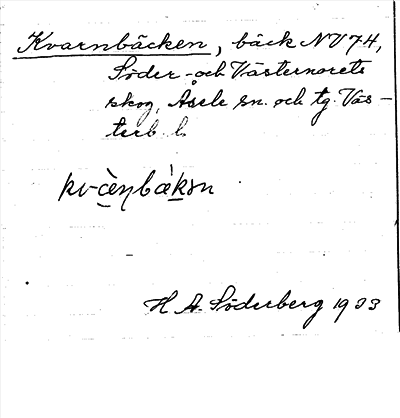 Kvarnbäcken, bäck NV 74,
Söder- och Västernorets
skog, Åsele sn. och tg. Väs-
terb. l.
kv-àen̥bàkən
H A. Söderberg 1933